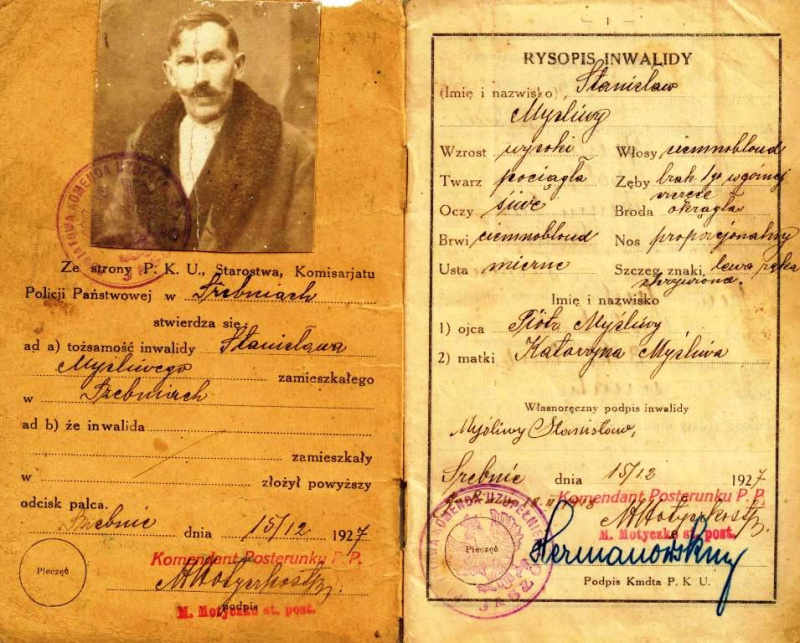 Ze strony P. K. U., Starostwa, Komisarjatu
Policji Państwowej w Trzebniach
stwierdza się
ad a) tożsamość inwalidy Stanisława
Myśliwego zamieszkałego
w Trzebniach
ad b) że inwalida
zamieszkały
w złożył powyższy
odcisk palca.
dnia 15/12 1927
Komendant Posterunku P. P.
Pieczęć
podpis
M. Motyczko st. post.
RYSOPIS INWALIDY
(Imię i nazwisko) Stanisław
Myśliwy
Wzrost wysoki Włosy ciemnoblond
Twarz pociągła Zęby brak 1go w górnej
Oczy siwe Broda okrągła
Brwi ciemnoblond Nos proporcjonalny
Usta mierne Szczeg. znaki lewa ręka
skrzywiona.
Imię i nazwisko
1) ojca Piotr Myśliwy
2) matki Katarzyna Myśliwa
Własnoręczny podpis inwalidy
Myśliwy Stanisław,
dnia 15/12 1927
Komendant Posterunku P. P.
M. Motyczko st. post.
Pieczęć
Podpis Kmdta P. K. U.